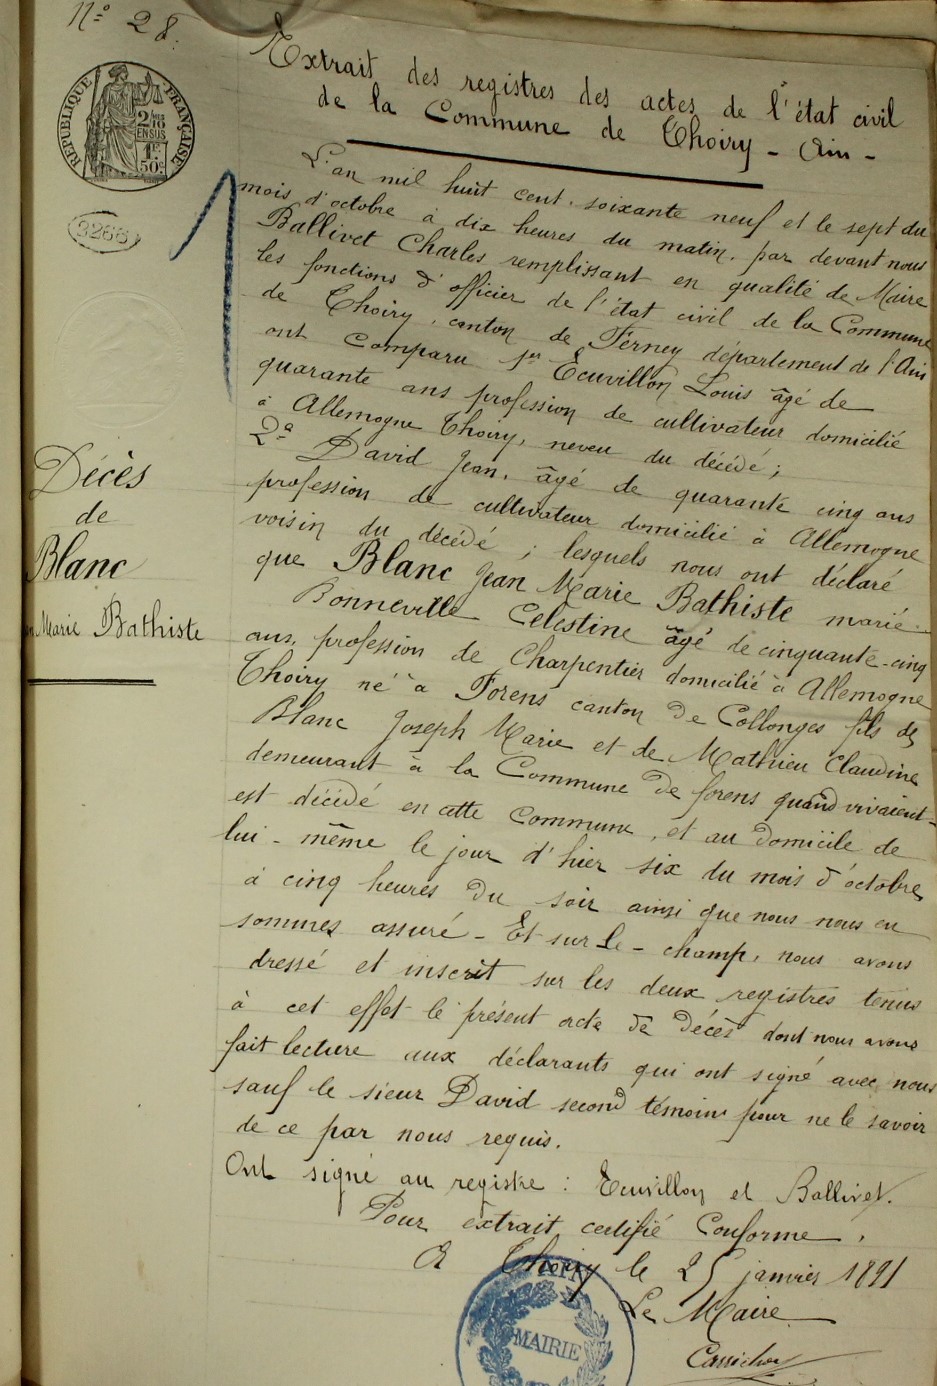 N° 28.
RÉPUBLIQUE FRANÇAISE
2/10
EN SUS
1F
50c
3266
Extrait des registres des actes de l'état civil
de la Commune de Thoiry - Ain -
L'an mil huit cent soixante neuf et le sept du
mois d'octobre à dix heures du matin, par devant nous
Ballivet Charles remplissant en qualité de Maire
les fonctions d'officier de l'état civil de la Commune
de Thoiry, canton de Ferney département de l'Ain
ont comparu 1er Ecuvillon Louis âgé de
quarante ans profession de cultivateur domicilié
à Allemogne Thoiry, neveu du décédé ;
2a David Jean, âgé de quarante cinq ans
profession de cultivateur domicilié à Allemogne
voisin du décédé ; lesquels nous ont déclaré
que Blanc Jean Marie Bathiste marié
Bonneville Celestine âgé de cinquante-cinq
ans, profession de Charpentier domicilié à Allemogne
Thoiry né à Forens canton de Collonges fils de
Blanc Joseph Marie et de Mathieu Claudine
demeurant à la Commune de forens quand vivaient
est décédé en cette Commune, et au domicile de
lui-même le jour d'hier six du mois d'octobre
à cinq heures du soir ainsi que nous nous en
sommes assuré - Et sur-le-champ, nous avons
dressé et inscrit sur les deux registres tenus
à cet effet le présent acte de décès dont nous avons
fait lecture aux déclarants qui ont signé avec nous
sauf le sieur David second témoin pour ne le savoir
de ce par nous requis.
Ont signé au registre : Ecuvillon et Ballivet.
Pour extrait certifié Conforme,
A Thoiry le 25 janvier 1891
Le Maire
Décès
de
Blanc
Marie Bathiste
AIN
MAIRIE